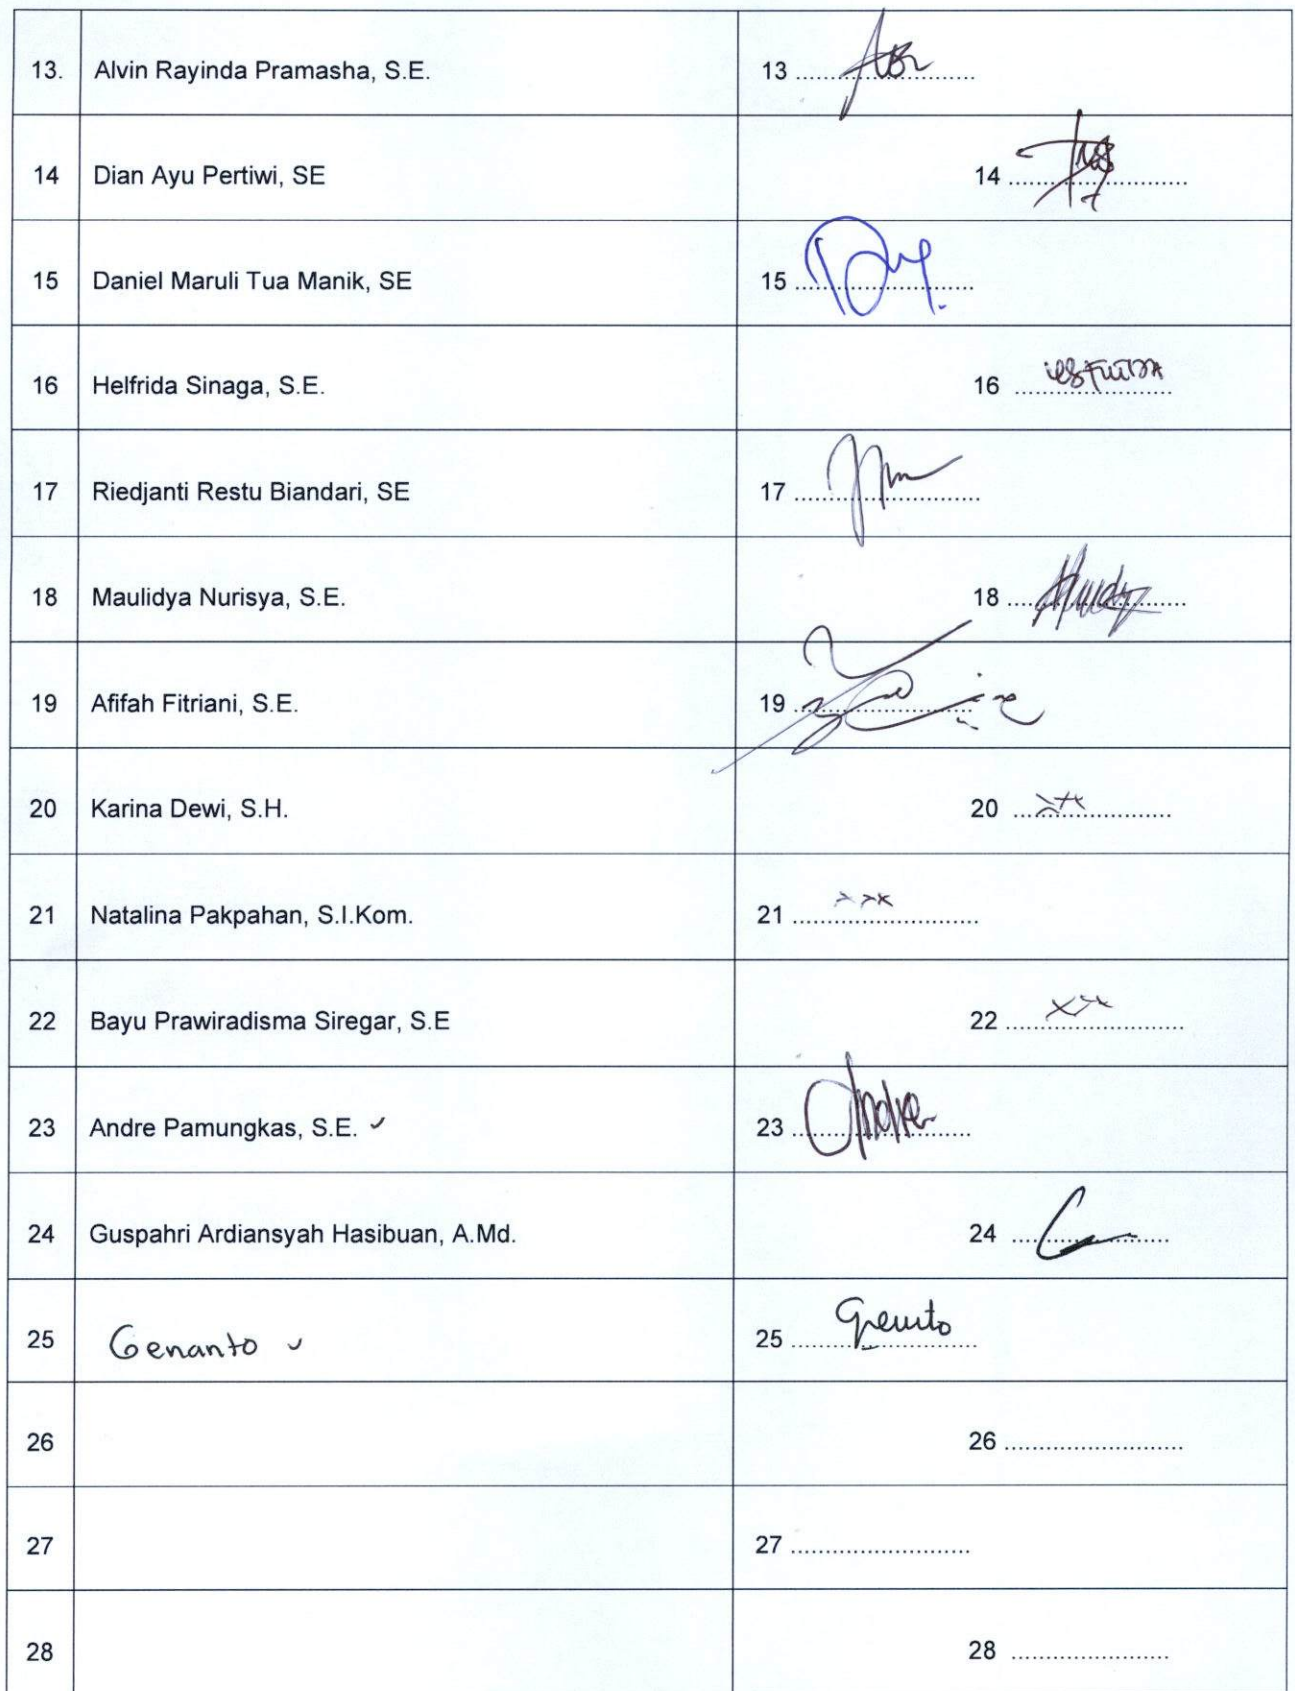 13. Alvin Rayinda Pramasha, S.E. 13 ..........................
14 Dian Ayu Pertiwi, SE 14 ..........................
15 Daniel Maruli Tua Manik, SE 15 ..........................
16 Helfrida Sinaga, S.E. 16 .......................
17 Riedjanti Restu Biandari, SE 17 ...........................
18 Maulidya Nurisya, S.E. 18 ..........................
19 Afifah Fitriani, S.E. 19 ..........................
20 Karina Dewi, S.H. 20 .......................
21 Natalina Pakpahan, S.I.Kom. 21 ...........................
22 Bayu Prawiradisma Siregar, S.E 22 ..........................
23 Andre Pamungkas, S.E. ✓ 23 ..........................
24 Guspahri Ardiansyah Hasibuan, A.Md. 24 .......................
25 Genanto ✓ 25 ...........................
26 26 ..........................
27 27 ..........................
28 28 .......................